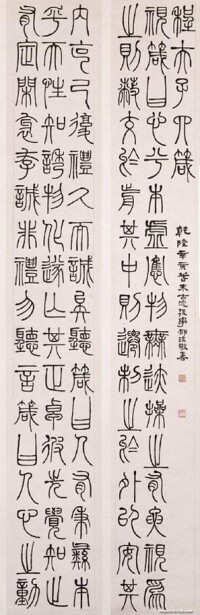 程夫子四箴
視箴曰心兮本虛應物無迹操之有要視爲
之則蔽交於前其中則遷制之於外以安其
內克己復禮久而誠矣聽箴曰人有秉彝本
乎天性知誘物化遂亡其正卓彼先覺知止
有定閑邪存誠非禮勿聽言箴曰人心之動
乾隆辛亥古浣後學鄧琰敬書